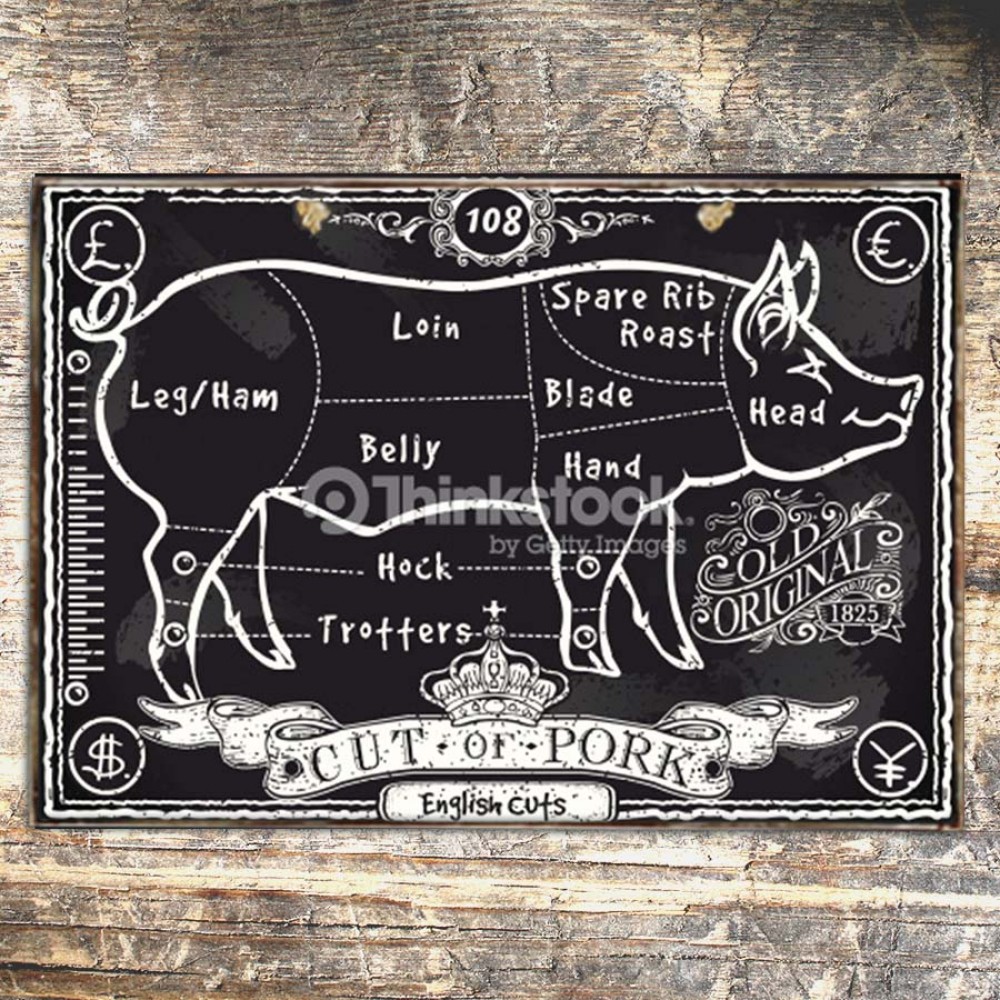 108
£.
€.
Spare Rib
Roast
Loin
Leg/Ham
Blade
Head
Belly
Hand
Thinkstock.
by Getty Images
Hock
OLD
ORIGINAL
1825
Trotters
CUT · OF · PORK
$.
¥
English Cuts